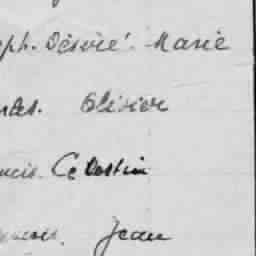 eph. Désiré. Marie
rles. Olivier
ncis. Célestin
Jean